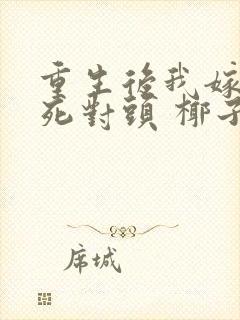 重生後我嫁
死對頭 椰子
席城